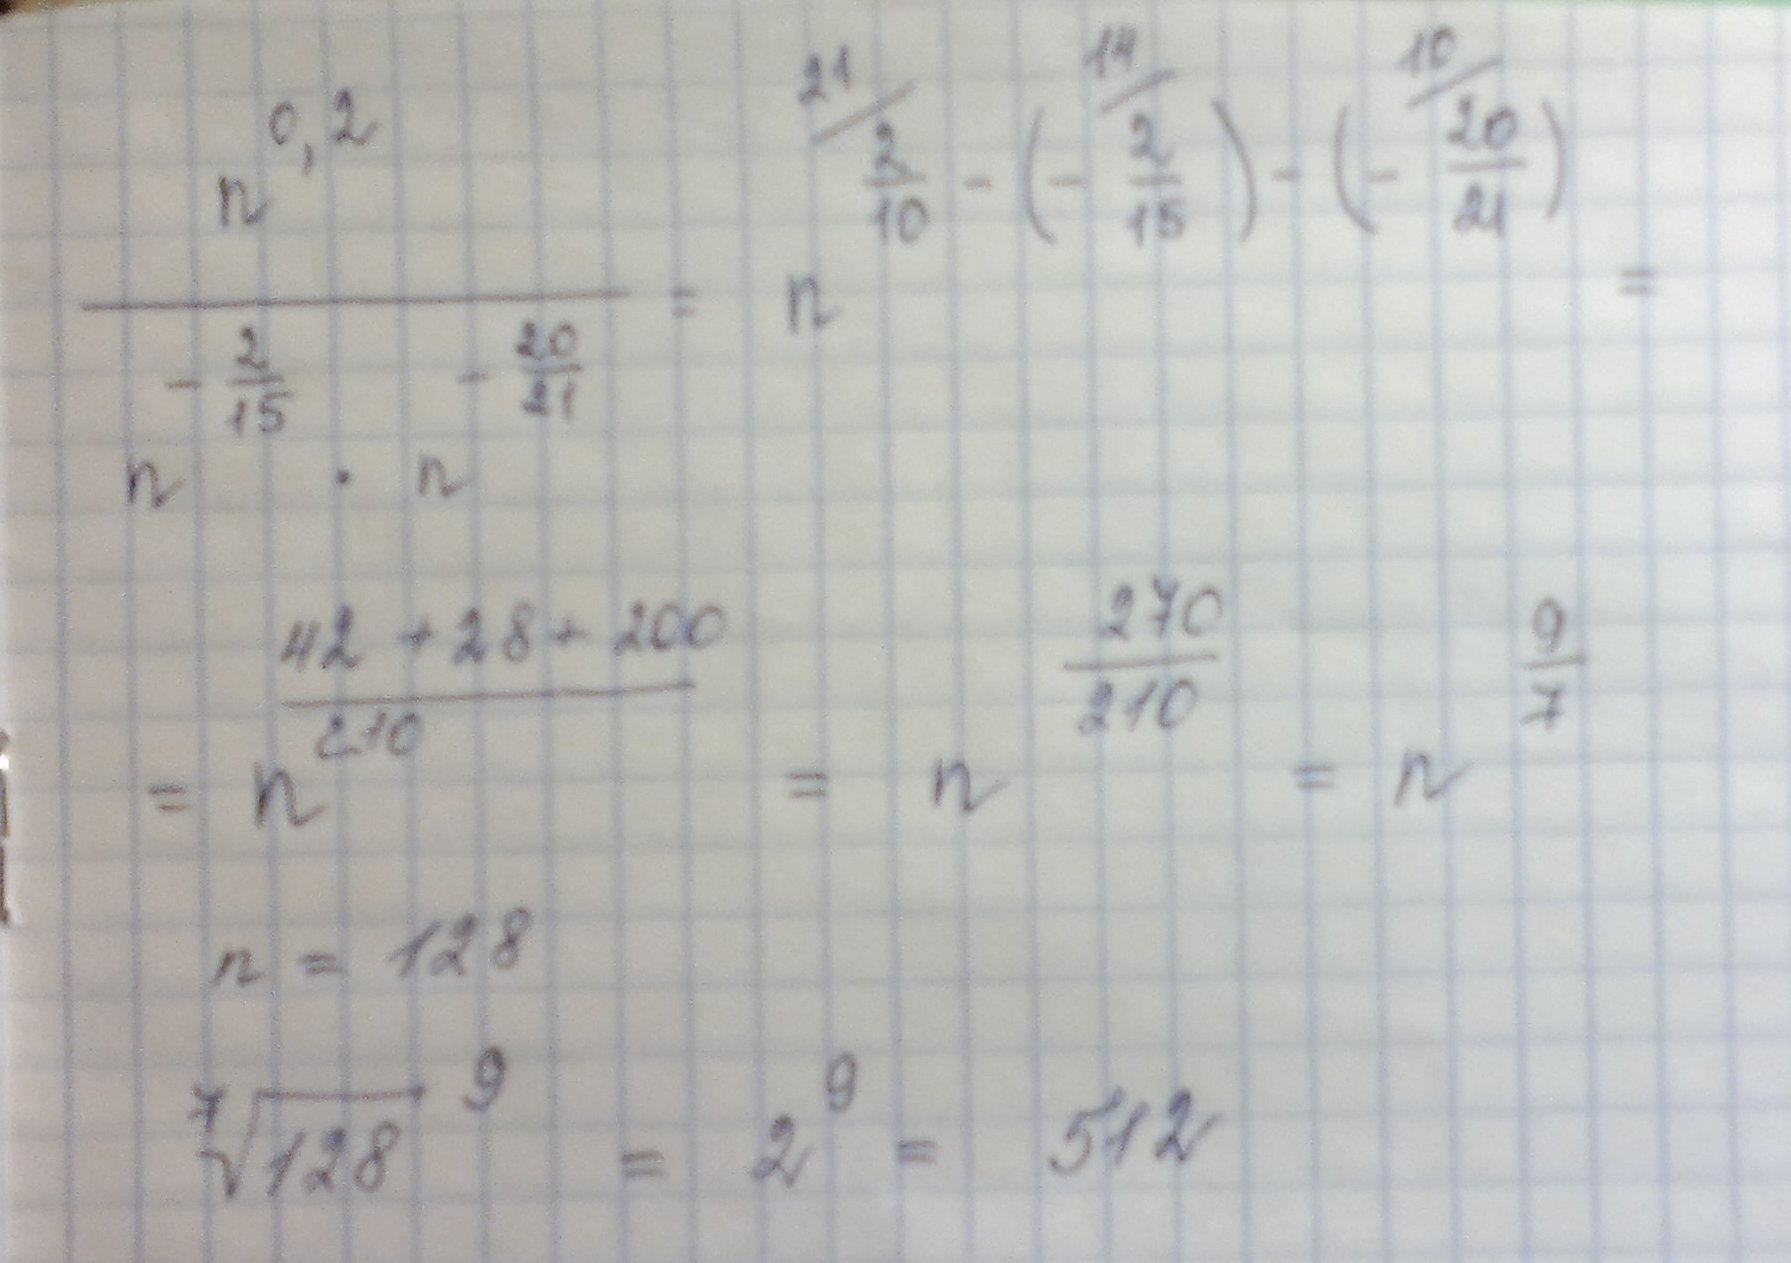 n^{0,2} / (n^{-2/15} · n^{-20/21}) = n^{^{21/}2/10 - (- ^{14/}2/15) - (- ^{10/}20/21)} =
= n^{(42 + 28 + 200)/210} = n^{270/210} = n^{9/7}
n = 128
⁷√128 ^9 = 2^9 = 512